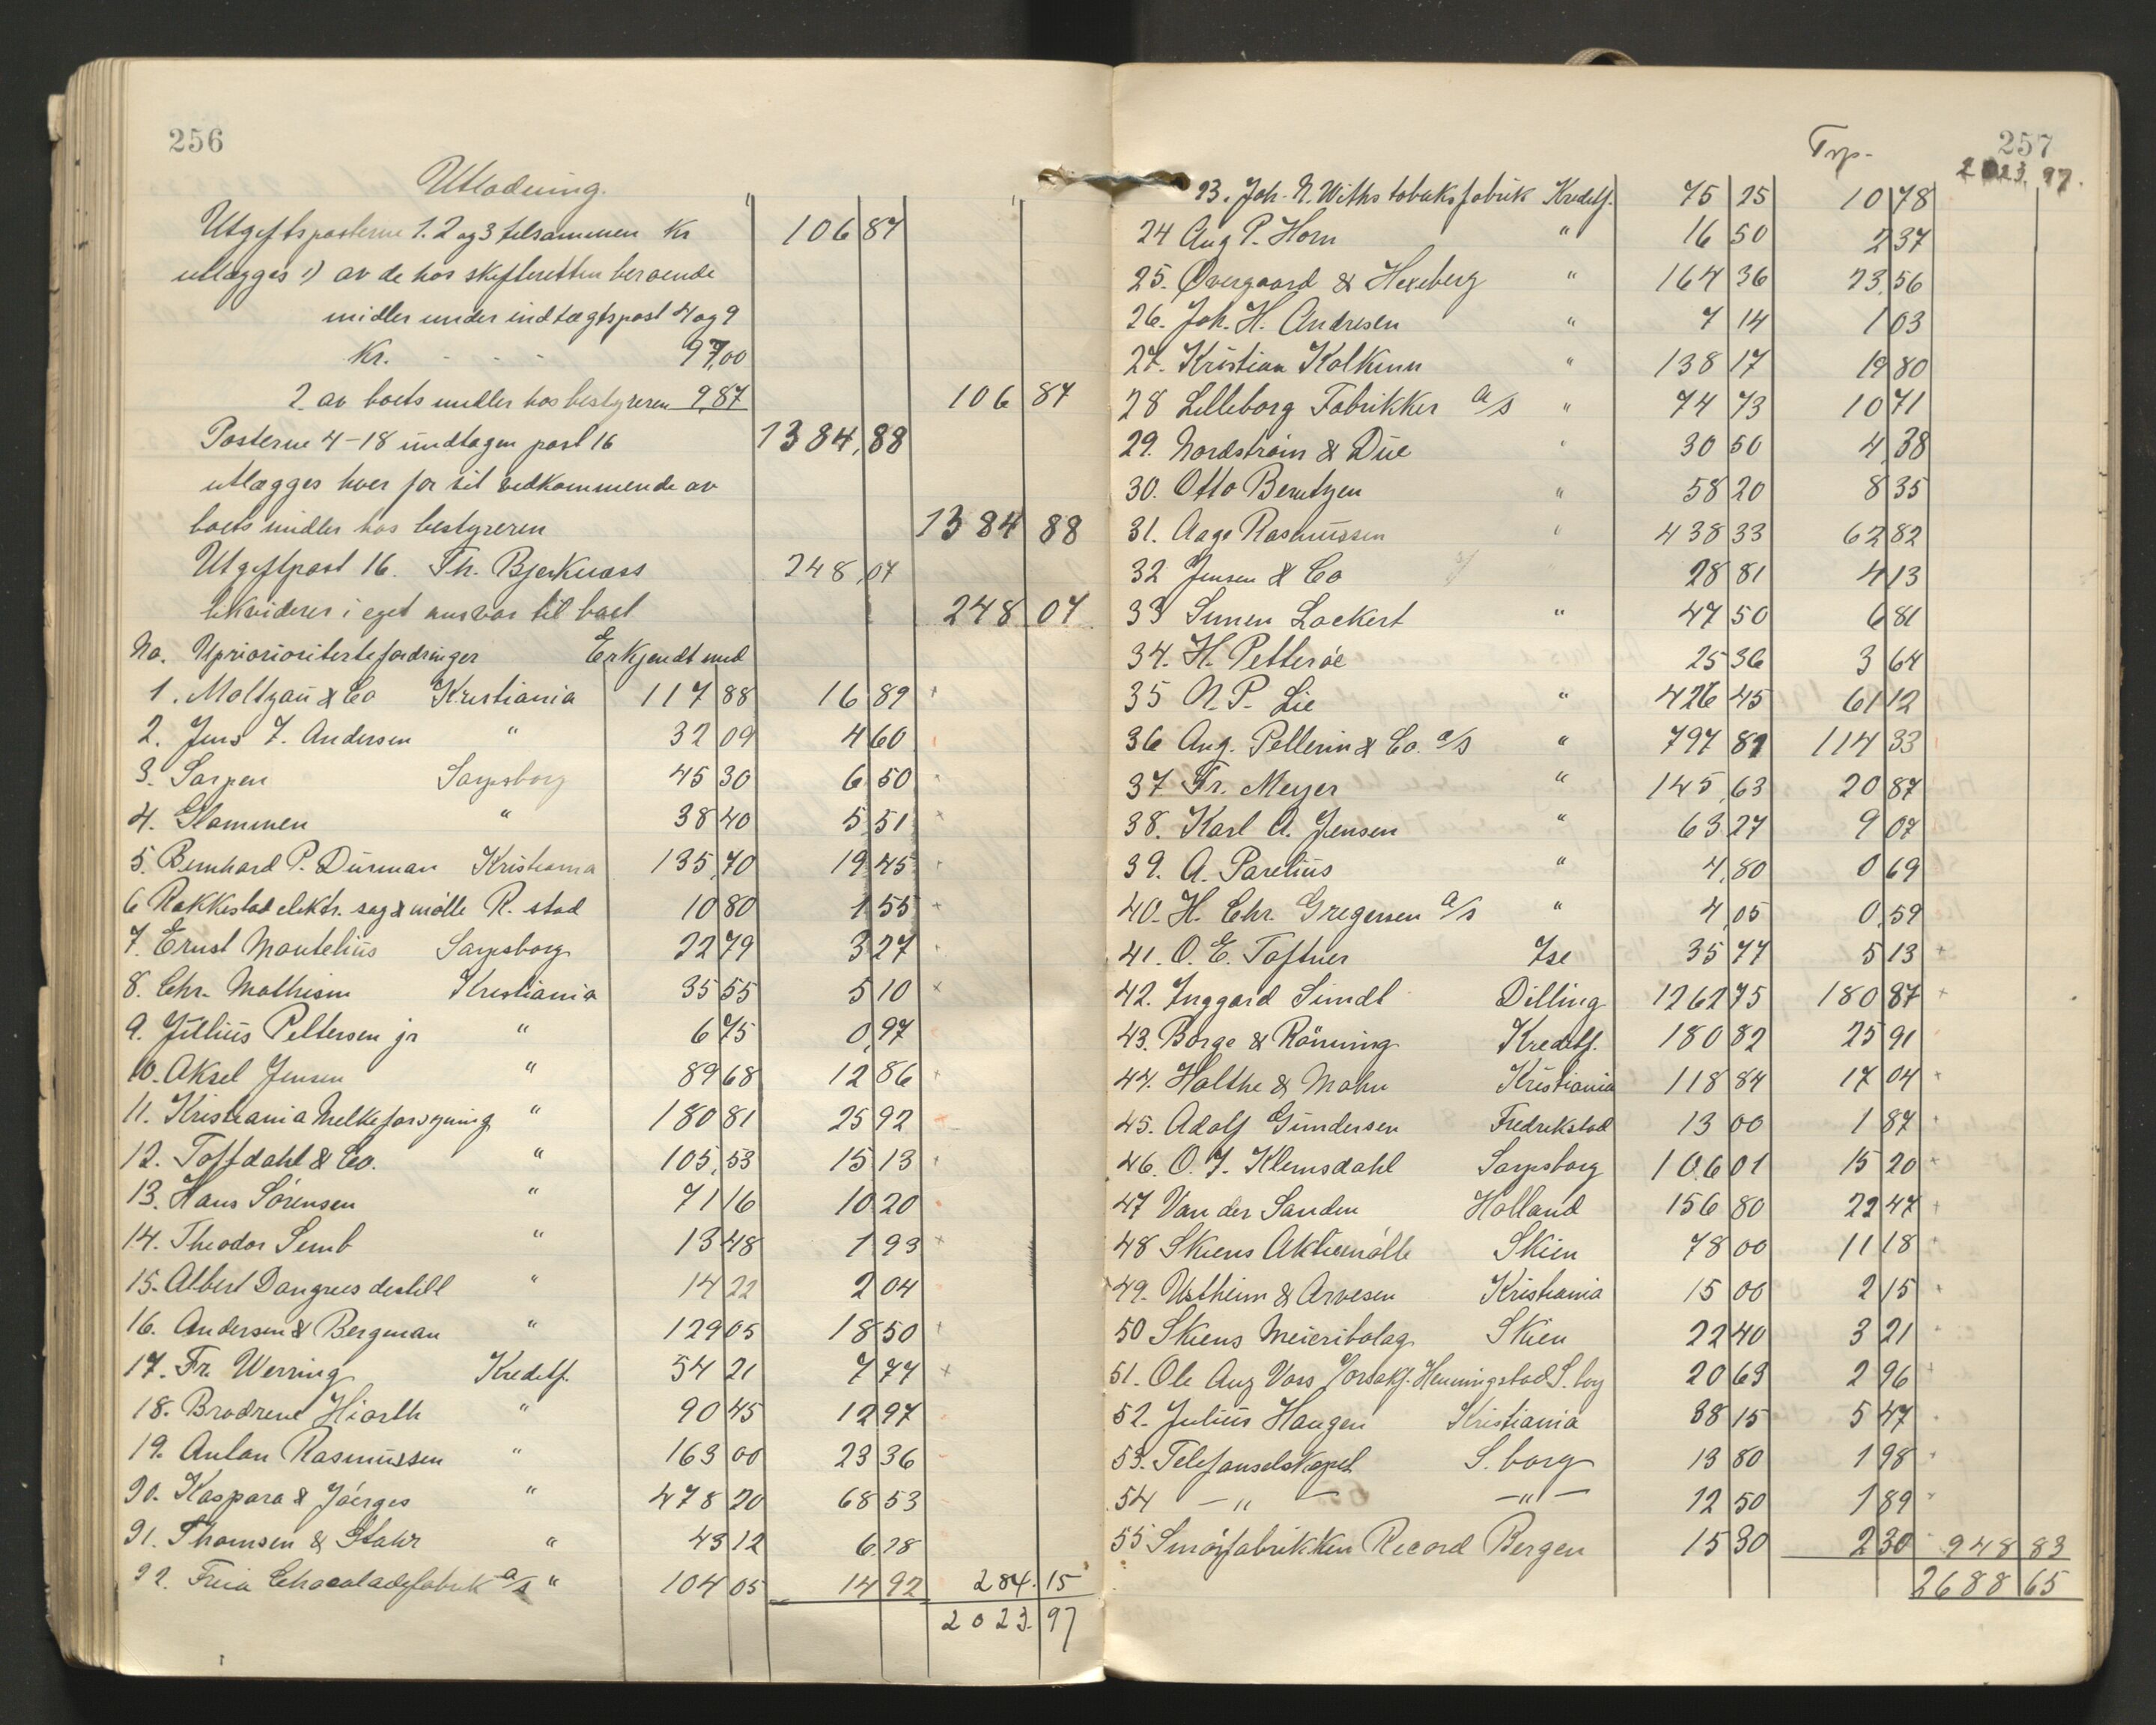 256
Utlodning.
Utgiftsposterne 1. 2 og 3 tilsammen Kr 106 87
utlægges 1) av de hos skifteretten beroende
midler under indtægtspost 4 og 9
Kr. - - - 97,00
2. av boets midler hos bestyreren 9,87 106 87
Posterne 4-18 undtagen post 16 1384,88
utlægges hver for sit vedkommende av
boets midler hos bestyreren 1384 88
Utgiftpost 16. Th. Bjerknæss 248,07
likviderer i eget ansvar til boet 248 07
No. Upriorioriterte fordringer Erkjendt med
1. Moltzau & Co Kristiania 117 88 16 89 +
2. Jens F. Andersen " 32 09 4 60
3. Sarpen Sarpsborg 45 30 6 50
4. Glommen " 38 40 5 51 +
5. Bernhard P. Durman Kristiania 135,70 19 45
6 Rakkestad elektr. sag & mølle R. stad 10 80 1 55 +
7. Ernst Montelius Sarpsborg 22 79 3 27
8. Chr. Mathisen Kristiania 35 55 5 10 +
9. Julius Pettersen jr " 6 75 0,97
10. Aksel Jensen " 89 68 12 86 +
11. Kristiania Melkeforsyning " 180 81 25 92 +
12. Toftdahl & Co. " 105,53 15 13
13. Hans Sörensen " 71 16 10 20
14. Theodor Semb " 13 48 1 93 +
15. Albert Dangrees destill " 14 22 2 04
16. Andersen & Bergman " 129 05 18 50 +
17. Fr. Werring Kreditf. 54 21 7 77 +
18. Brødrene Hiorth " 90 45 12 97
19. Anton Rasmussen " 163 00 23 36
20. Kaspara & Jöerges " 478 20 68 53
21. Thomsen & Stahr " 43 12 6,18
22. Freia Chocoladefabrik a/s " 104 05 14 92 284.15
2023.97
257
Trp. 2023,97.
23. Joh. N. Withs tobaksfabrik Kreditf. 75 25 10 78
24 Aug P. Horn " 16 50 2 37
25. Øvergaard & Hexeberg " 164 36 23,56
26. Joh. H. Andresen " 7 14 1 03
27. Kristian Kolkinn " 138 17 19 80
28 Lilleborg Fabrikker a/s " 74 73 10 71
29. Nordström & Due " 30 50 4,38
30. Otto Berntzen " 58 20 8 35
31. Aage Rasmussen " 438 33 62 82
32 Jensen & Co 28 81 4 13
33 Simen Lockert " 47 50 6 81
34. H. Petteröe 25 36 3 64
35 N. P. Lie " 426 45 61 12
36 Aug. Pellerin & Co. a/s " 797 81 114 33
37 Fr. Meyer " 145,63 20 87
38. Karl A. Jensen " 63 27 9 07
39. A. Parelius " 4,80 0 69
40. H. Chr. Gregersen a/s " 4,05 0,59
41. O. E. Toftner Ise 35 77 5 13 +
42. Inggard Simdt Dilling 1262 75 180 87 +
43. Borge & Rönning Kreditf. 180 82 25 91
44. Holthe & Mohn Kristiania 118 84 17 04
45. Adolf Gundersen Fredrikstad 13 00 1 87
46. O. J. Klemsdahl Sarpsborg 106 01 15 20 +
47 Van der Sanden Holland 156 80 22 47 +
48 Skiens Aktiemölle Skien 78 00 11 18
49. Ustheim & Arvesen Kristiania 15 00 2 15
50 Skiens Meieribolag Skien 22 40 3 21
51. Ole Aug Voss Henningstad S. borg 20 63 2 96
52. Julius Haugen Kristiania 38 15 5 47
53. Telefonselskapet S. borg 13 80 1 98
54 - " - - " - 12 50 1 89
55 Smörfabrikken Record Bergen 15 30 2 30 948 83
2688 65